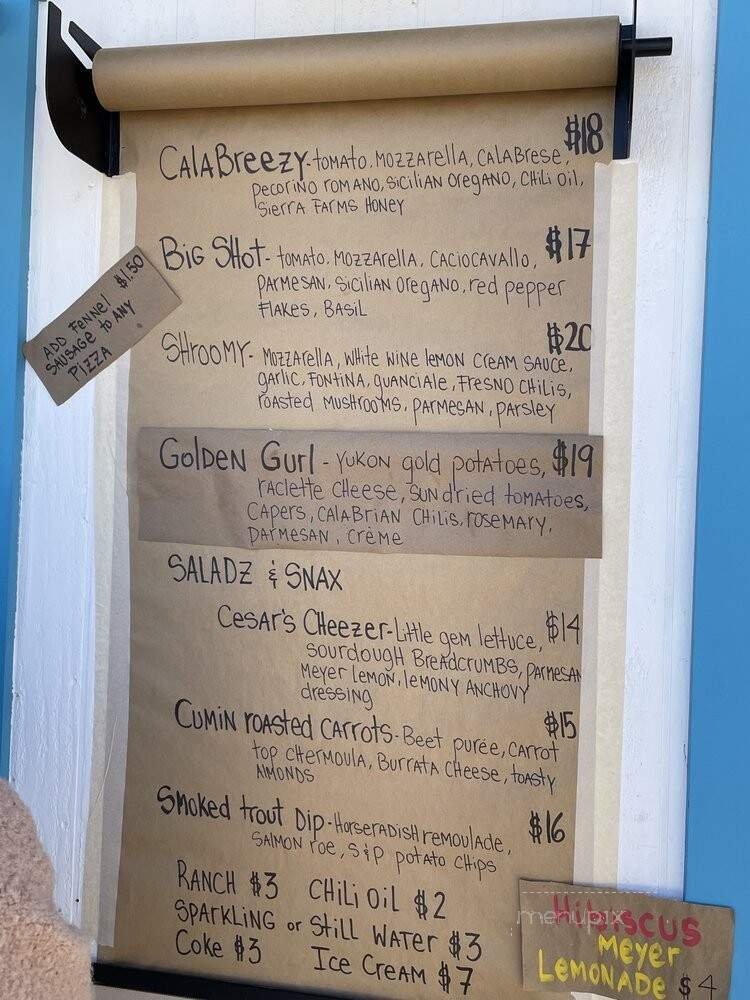 $18
CALABreezy - tomato, MOZZArella, CALABrese,
Pecorino romano, Sicilian Oregano, CHili Oil,
Sierra Farms Honey
$17
Big SHot - tomato, MOZZArella, CACIOCAVALLO,
Parmesan, Sicilian Oregano, red pepper
Flakes, Basil
ADD Fennel $1.50
SAUSAGE to ANY
PIZZA
$20
SHrooMY - Mozzarella, White Wine lemon cream sauce,
garlic, Fontina, guanciale, Fresno CHilis,
roasted MUSHrooms, Parmesan, Parsley
Golden Gurl - Yukon gold potatoes, $19
raclette cheese, sun dried tomatoes,
Capers, Calabrian CHilis, rosemary,
Parmesan, Crème
SALADZ & SNAX
Cesar's CHeezer - Little gem lettuce, $14
Sourdough Breadcrumbs, Parmesan
Meyer Lemon, lemony Anchovy
dressing
Cumin roasted carrots - Beet purée, Carrot $15
top CHermoula, Burrata Cheese, toasty
Almonds
Smoked trout Dip - Horseradish remoulade, $16
Salmon roe, S&P potato CHips
RANCH $3 CHili Oil $2
Sparkling or Still Water $3
Coke $3 Ice Cream $7
menupix
Hibiscus
Meyer
Lemonade $4